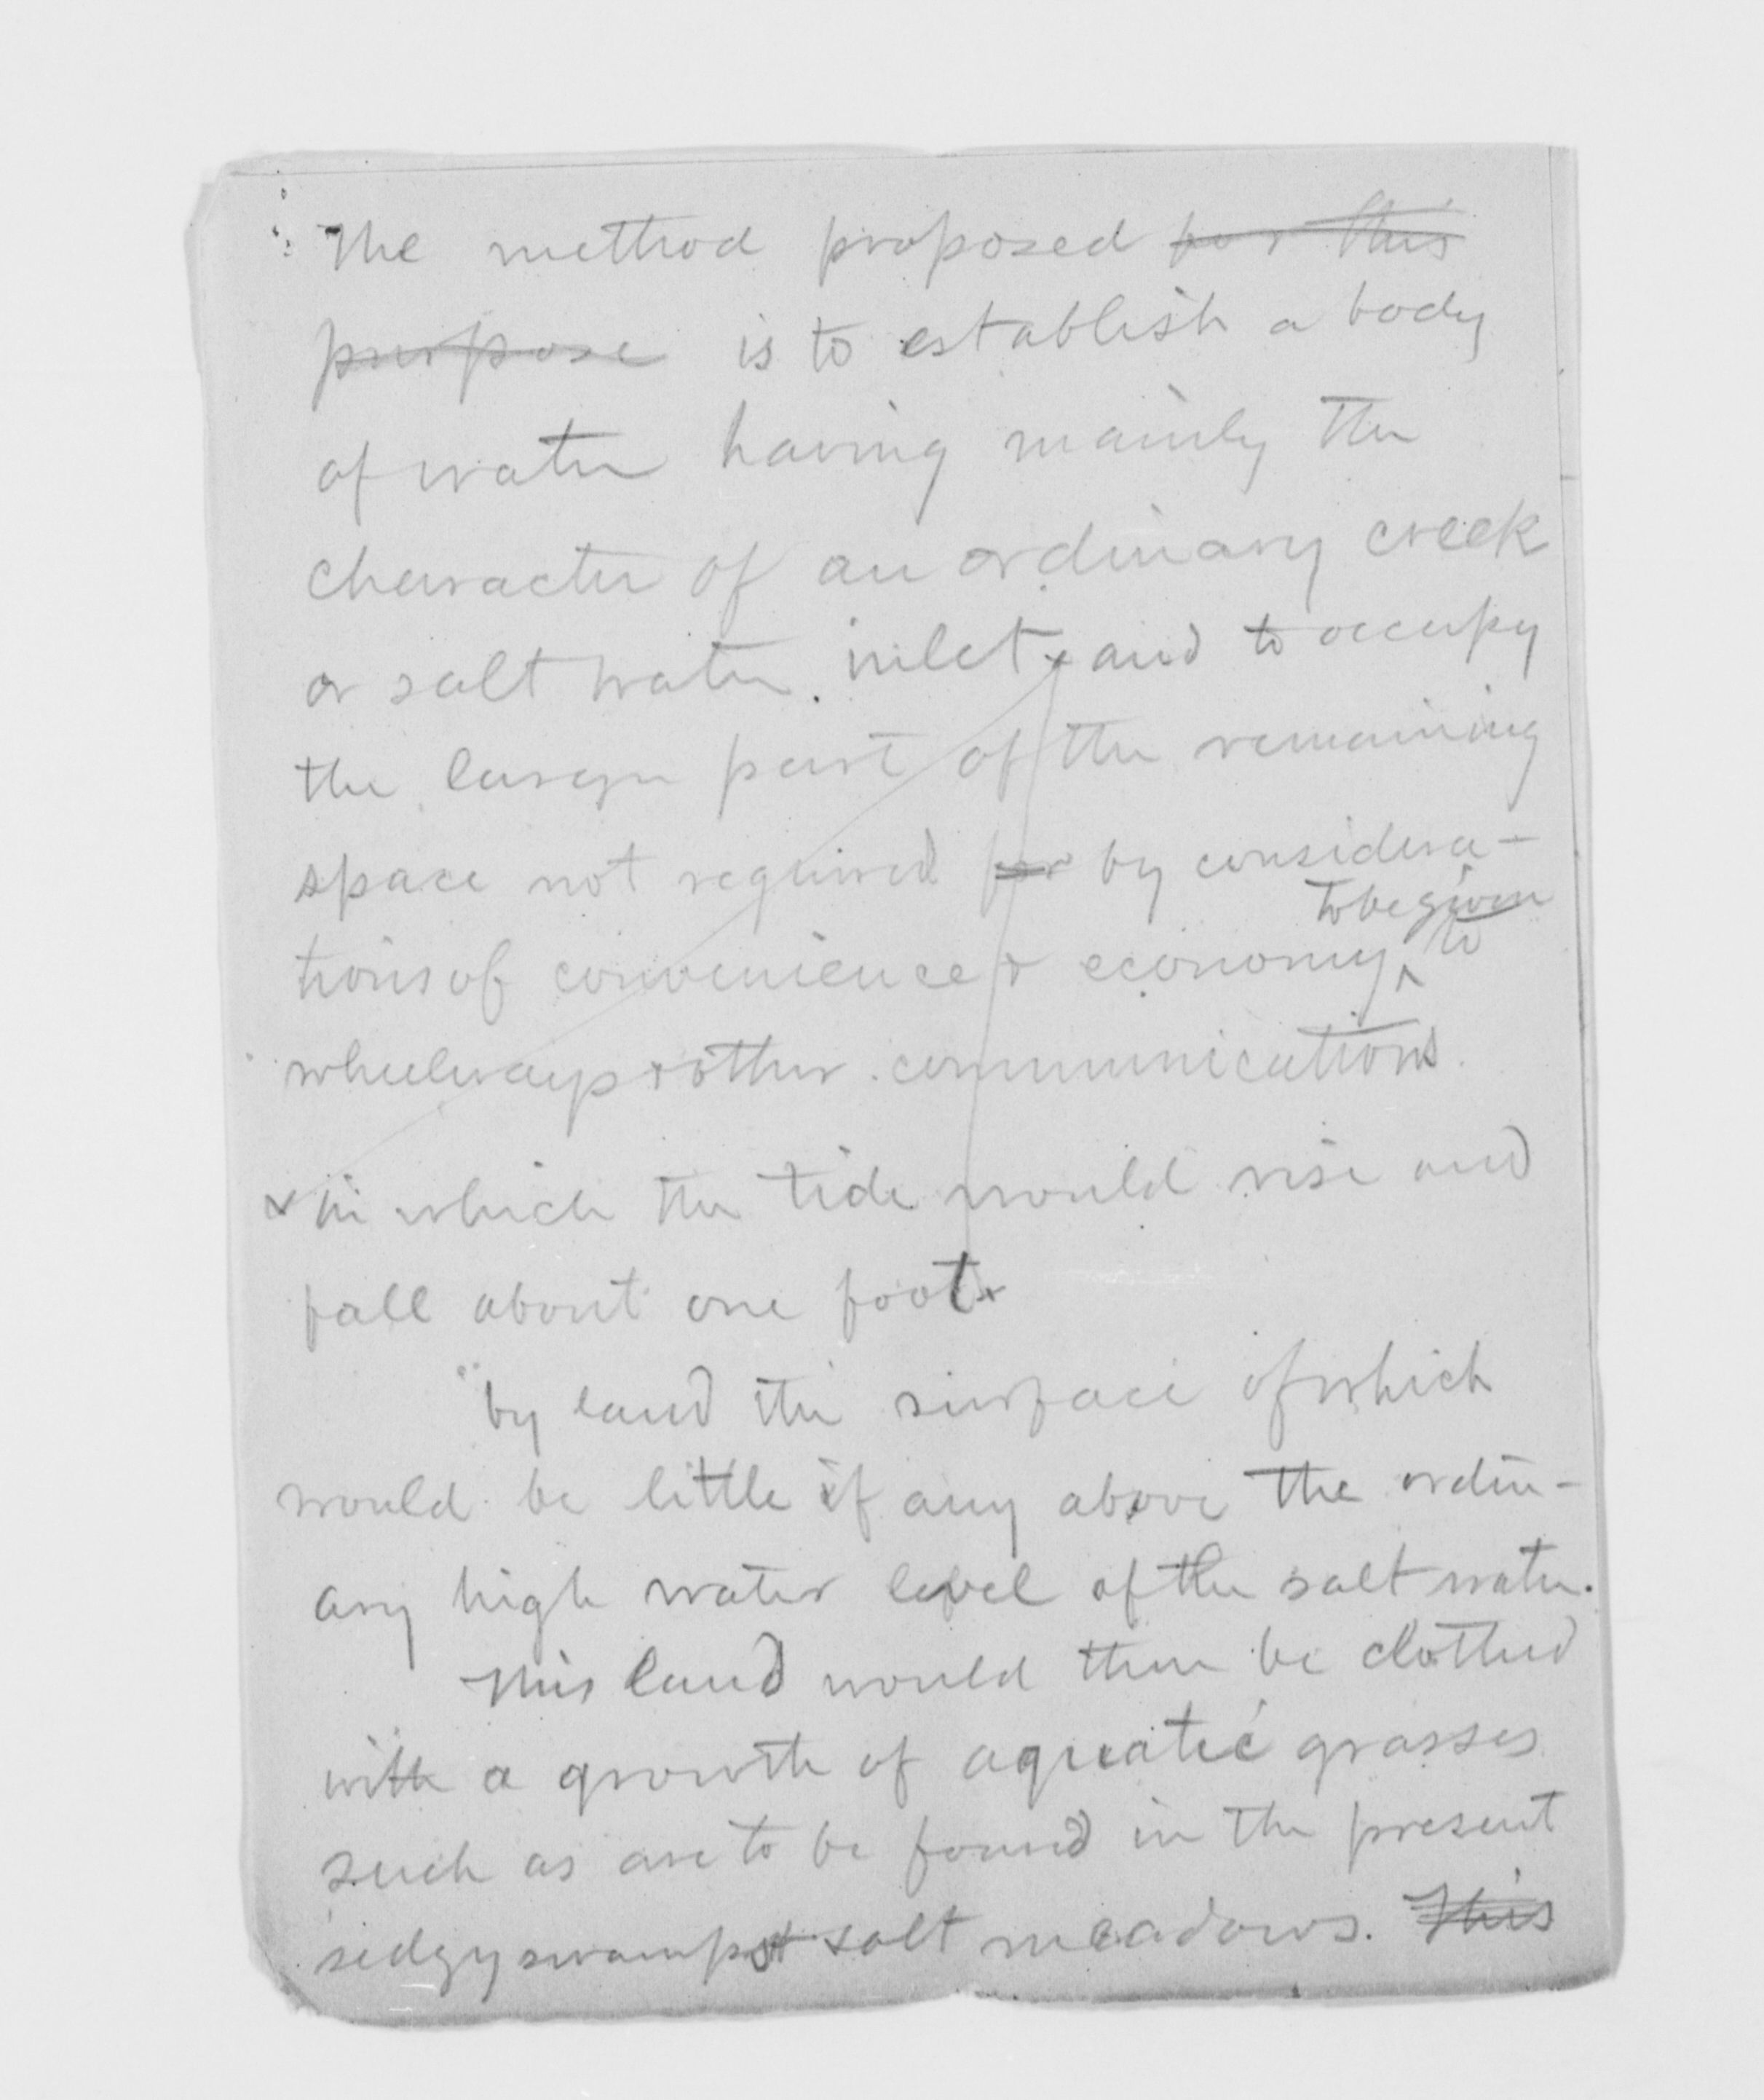 The method proposed for this
purpose is to establish a body
of water having mainly the
character of an ordinary creek
or salt water inlet x and to occupy
the larger part of the remaining
space not required for by considera-
to be given
tions of convenience & economy ^ to
wheelways & other communications.
x in which the tide would rise and
fall about one foot x
by land the surface of which
would be little if any above the ordin-
ary high water level of the salt water.
This land would then be clothed
with a growth of aquatic grasses
such as are to be found in the present
sedgy swamps & salt meadows. This